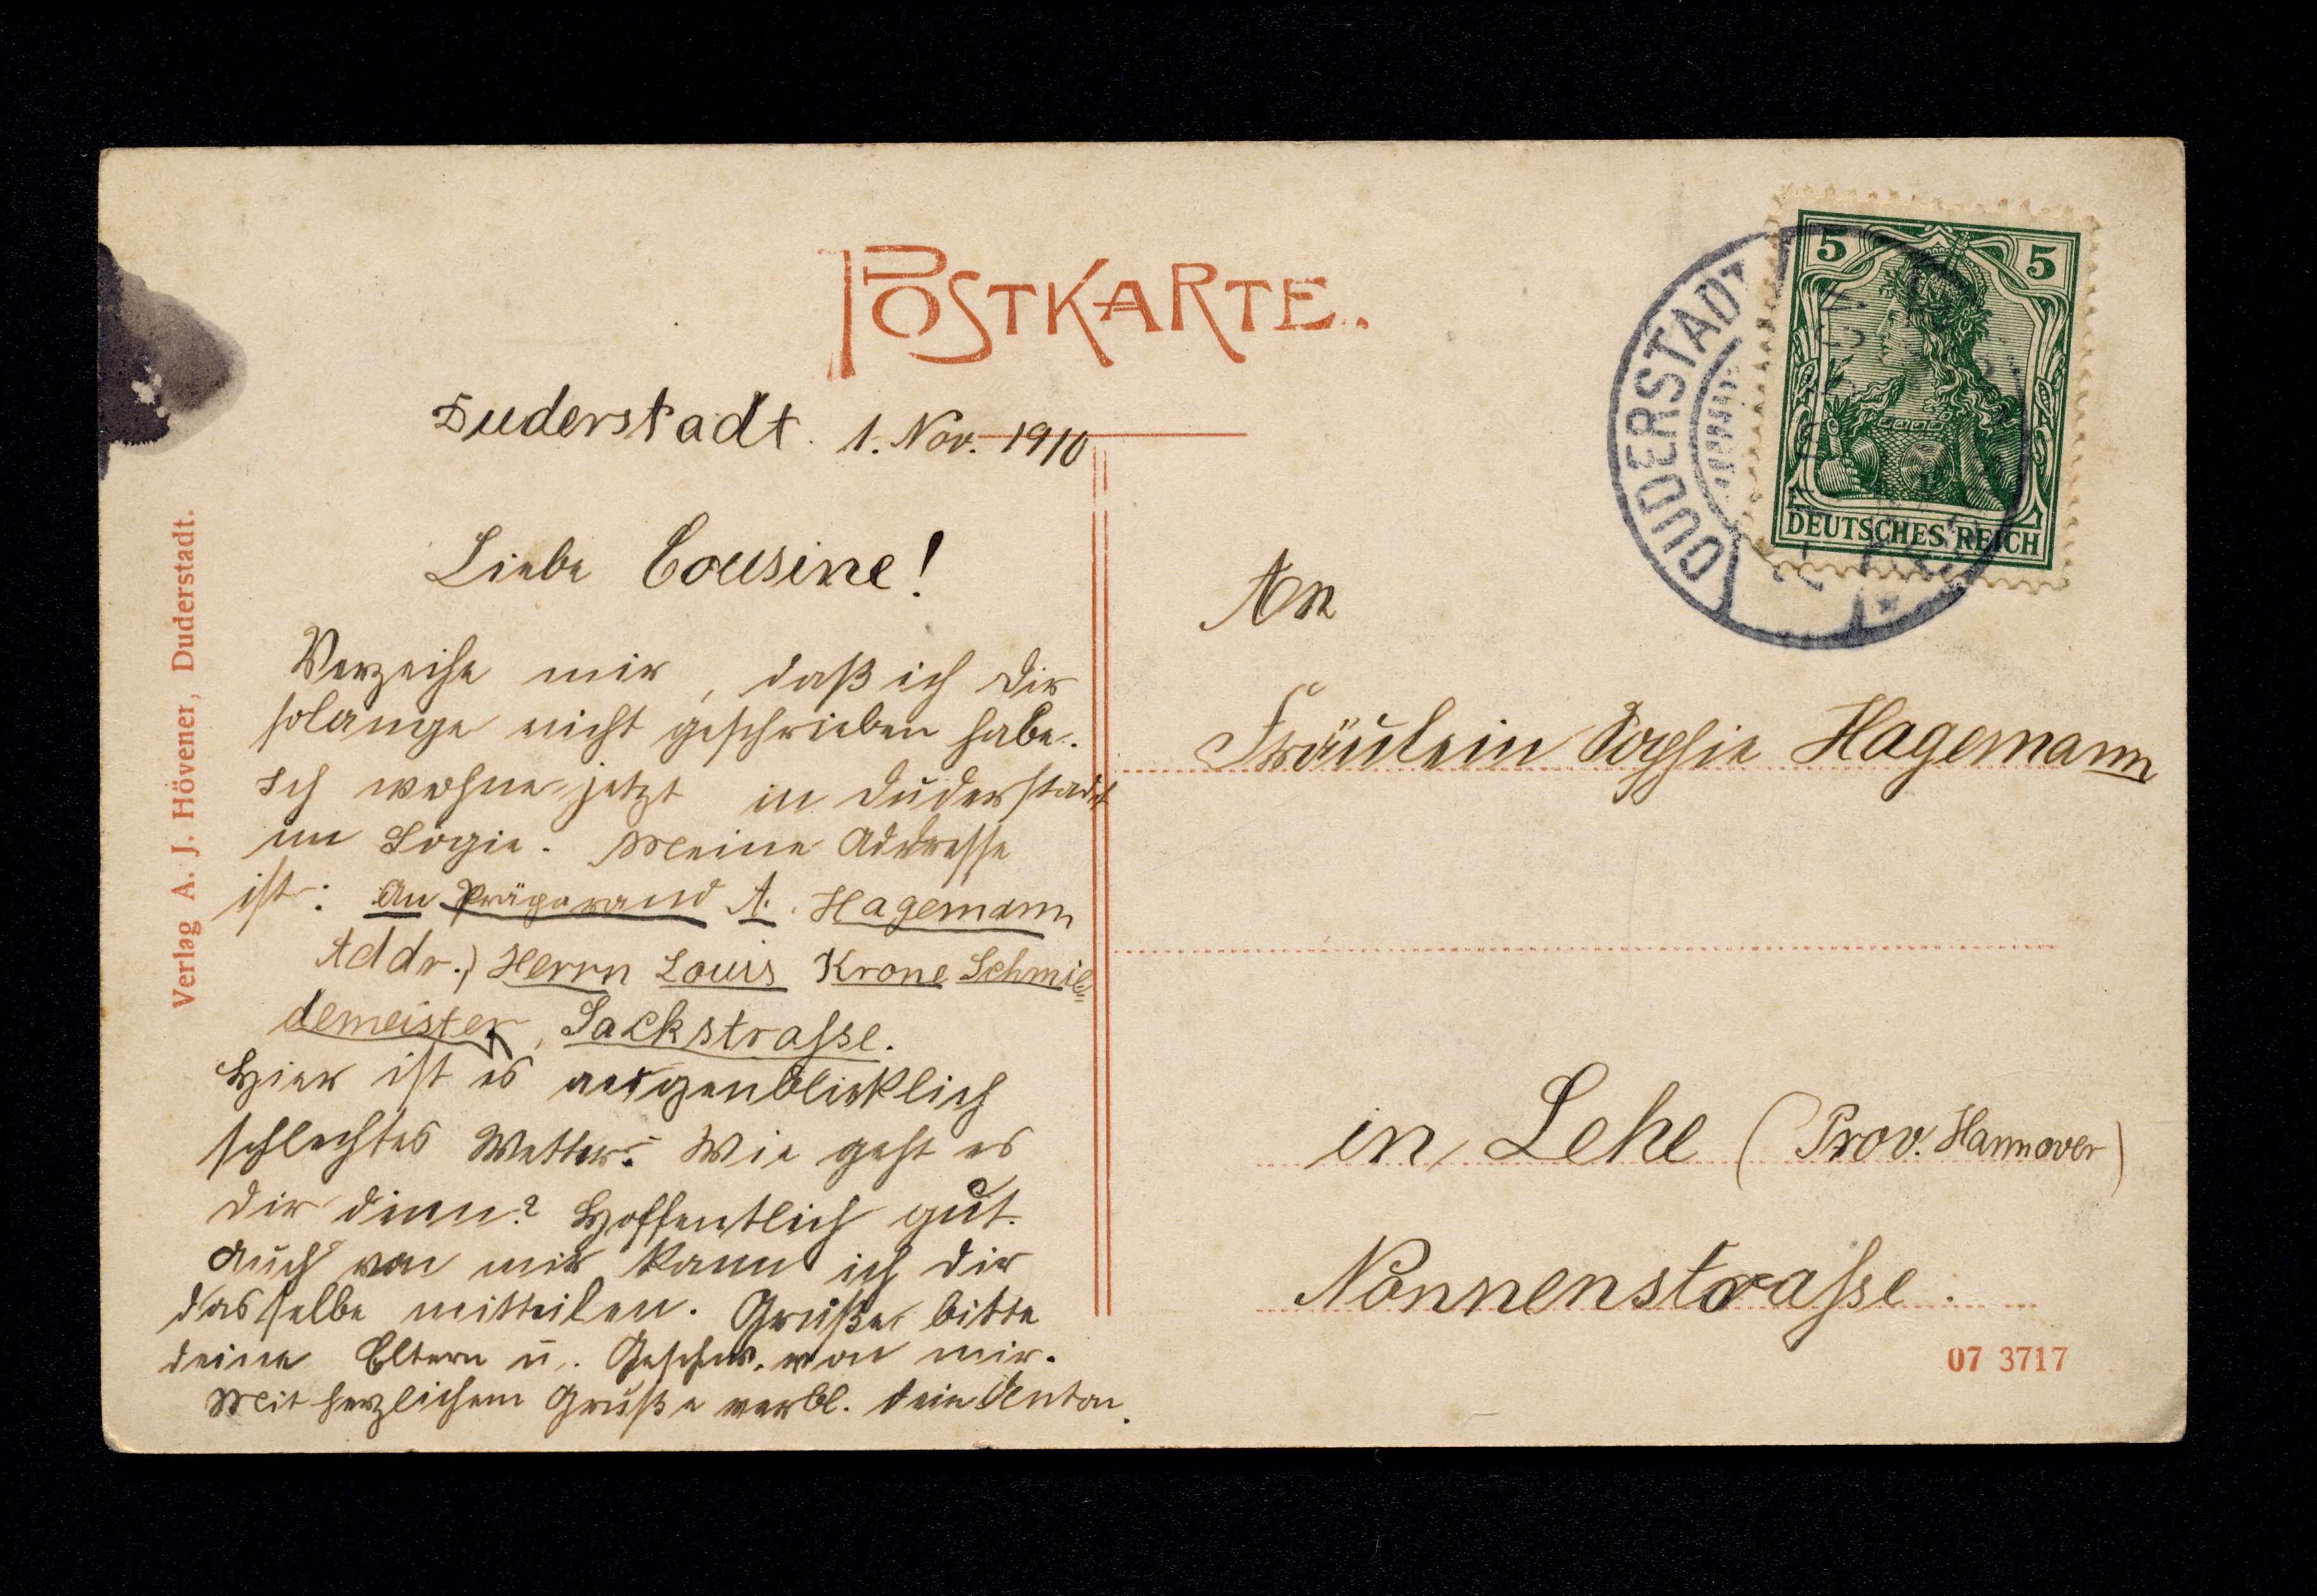 POSTKARTE.
Duderstadt. 1. Nov. 1910
Liebe Cousine!
Verzeihe mir, daß ich dir
solange nicht geschrieben habe.
Ich wohne jetzt in Duderstadt
im Logie. Meine Addresse
ist: An Präparand A. Hagemann
Addr.) Herrn Louis Krone Schmie=
demeister, Sackstrasse.
Hier ist es augenblicklich
schlechtes Wetter. Wie geht es
dir denn? Hoffentlich gut.
Auch von mir kann ich dir
dasselbe mitteilen. Grüße bitte
deine Eltern u. Geschw. von mir.
Mit herzlichem Gruße verbl. dein Anton.
Verlag A. J. Hövener, Duderstadt.
DUDERSTADT
5 5
DEUTSCHES REICH
An
Fräulein Sophie Hagemann
in Lehe (Prov. Hannover)
Nonnenstrasse.
07 3717